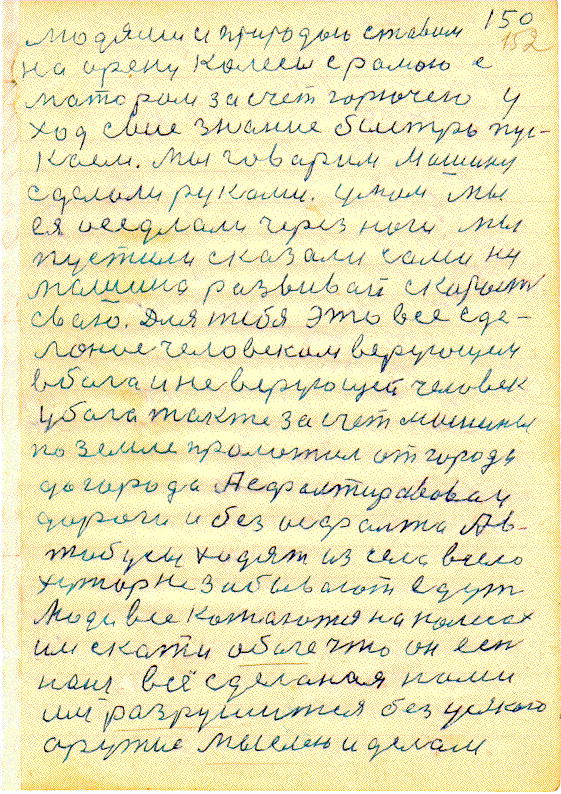 150
152
людями и природою ставим
на арену Колесы с рамою с
матором за счет горючего у
ход свие знание быстрь пус-
каем. мы говарим машину
сделали руками. умом мы
ея оседлали через ноги мы
пустили сказали сами ну
машина развивай скорост
сваю. Для тебя это все сде-
ланое человеком верующем
в бога и не верующей человек
у бога такте за счет машины
по земле проложил от города
до города Асфалтирововаи
дороги и без асфалта Ав-
тобусы ходят из села в село
хутор не забывают едут
Люди все катаются на колесах
им скати обоге что он ест
наш всё сделаная нами
им разрушится без усякого
аружие мыслею и делам